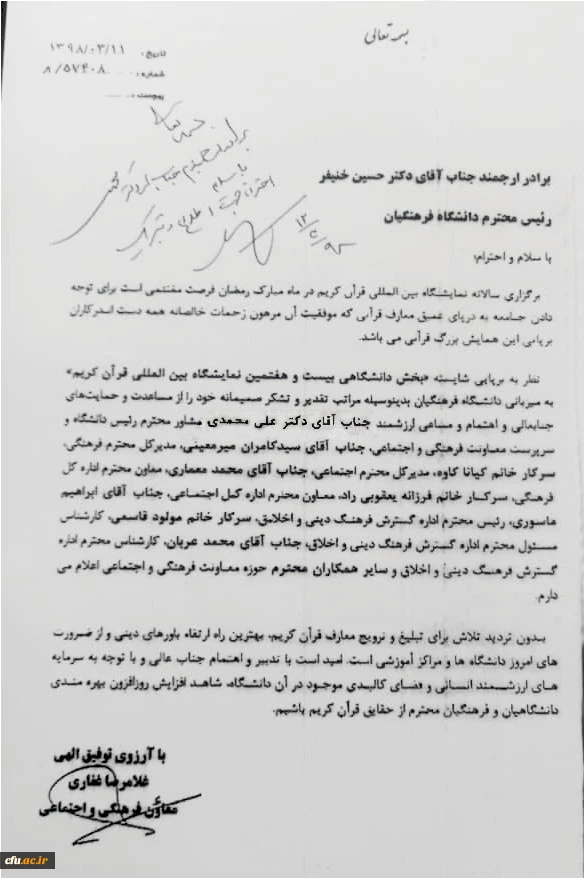 بسمه تعالی
تاریخ: ۱۳۹۸/۰۳/۱۱
شماره: ۸/۵۷۴۰۸
پیوست:
برادر ارجمند جناب آقای دکتر حسین خنیفر
رئیس محترم دانشگاه فرهنگیان
با سلام و احترام؛
برگزاری سالانه نمایشگاه بین المللی قرآن کریم در ماه مبارک رمضان فرصت مغتنمی است برای توجه
دادن جامعه به دریای عمیق معارف قرآنی که موفقیت آن مرهون زحمات خالصانه همه دست اندرکاران
برپایی این همایش بزرگ قرآنی می باشد.
نظر به برپایی شایسته «بخش دانشگاهی بیست و هفتمین نمایشگاه بین المللی قرآن کریم»
به میزبانی دانشگاه فرهنگیان بدینوسیله مراتب تقدیر و تشکر صمیمانه خود را از مساعدت و حمایت‌های
جنابعالی و اهتمام و مساعی ارزشمند جناب آقای دکتر علی محمدی مشاور محترم رئیس دانشگاه و
سرپرست معاونت فرهنگی و اجتماعی، جناب آقای سیدکامران میرمعینی، مدیرکل محترم فرهنگی،
سرکار خانم کیانا کاوه، مدیرکل محترم اجتماعی، جناب آقای محمد معماری، معاون محترم اداره کل
فرهنگی، سرکار خانم فرزانه یعقوبی راد، معاون محترم اداره کل اجتماعی، جناب آقای ابراهیم
عاسوری، رئیس محترم اداره گسترش فرهنگ دینی و اخلاق، سرکار خانم مولود قاسمی، کارشناس
مسئول محترم اداره گسترش فرهنگ دینی و اخلاق، جناب آقای محمد عربان، کارشناس محترم اداره
گسترش فرهنگ دینی و اخلاق و سایر همکاران محترم حوزه معاونت فرهنگی و اجتماعی اعلام می
دارم.
بدون تردید تلاش برای تبلیغ و ترویج معارف قرآن کریم، بهترین راه ارتقاء باورهای دینی و از ضرورت
های امروز دانشگاه ها و مراکز آموزشی است. امید است با تدبیر و اهتمام جناب عالی و با توجه به سرمایه
های ارزشمند انسانی و فضای کالبدی موجود در آن دانشگاه، شاهد افزایش روزافزون بهره مندی
دانشگاهیان و فرهنگیان محترم از حقایق قرآن کریم باشیم.
با آرزوی توفیق الهی
غلامرضا غفاری
معاون فرهنگی و اجتماعی
cfu.ac.ir